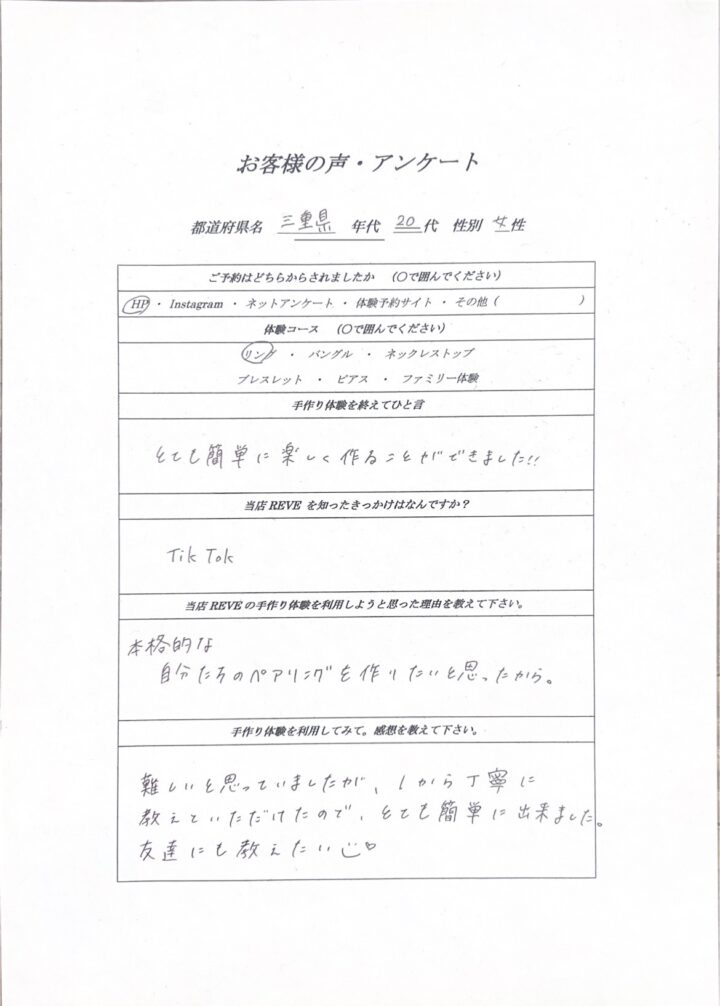 お客様の声・アンケート
都道府県名 三重県 年代 20代 性別 女性
ご予約はどちらからされましたか （〇で囲んでください）
HP ・ Instagram ・ ネットアンケート ・ 体験予約サイト ・ その他（ ）
体験コース （〇で囲んでください）
リング ・ バングル ・ ネックレストップ
ブレスレット ・ ピアス ・ ファミリー体験
手作り体験を終えてひと言
とても簡単に楽しく作ることができました!!
当店REVE を知ったきっかけはなんですか？
TikTok
当店REVEの手作り体験を利用しようと思った理由を教えて下さい。
本格的な
自分たちのペアリングを作りたいと思ったから。
手作り体験を利用してみて。感想を教えて下さい。
難しいと思っていましたが、1から丁寧に
教えていただけたので、とても簡単に出来ました。
友達にも教えたい